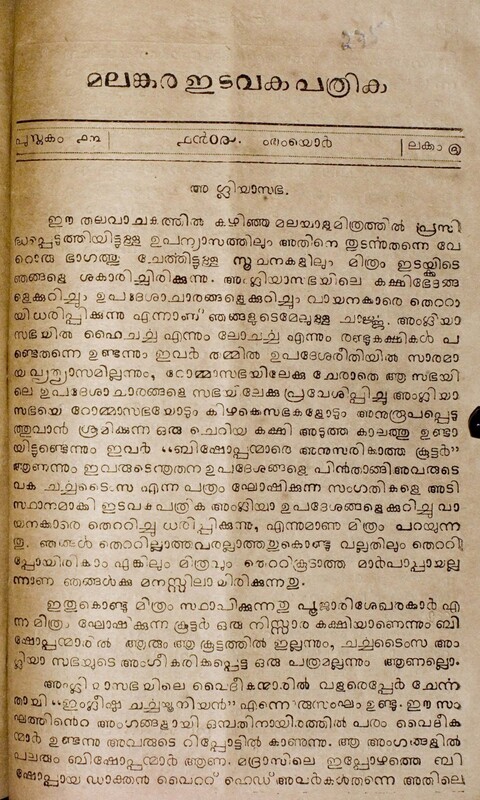 235
മലങ്കര ഇടവക പത്രിക
പുസ്തകം ൧൩ | ൧൯൦൪. മെംയൊർ | ലക്കം ൫
അംഗ്ലിയാസഭ.
ഈ തലവാചകത്തിൽ കഴിഞ്ഞ മലയാളമിത്രത്തിൽ പ്രസി
ദ്ധപ്പെടുത്തിയിട്ടുള്ള ഉപന്യാസത്തിലും അതിനെ തുടൎന്നതന്നെ വേ
റൊരു ഭാഗത്തു ചേൎത്തിട്ടുള്ള സൂചനകളിലും മിത്രം ഇടയ്ക്കിടെ
ഞങ്ങളെ ശകാരിച്ചിരിക്കുന്നു. അംഗ്ലിയാസഭയിലെ കക്ഷിഭേദങ്ങ
ളെക്കുറിച്ചും ഉപദേശാചാരങ്ങളെക്കുറിച്ചും വായനകാരെ തെററാ
യി ധരിപ്പിക്കുന്നു എന്നാണ് ഞങ്ങളുടെമേലുള്ള ചാൎജ്ജ. അംഗ്ലിയാ
സഭയിൽ ഹൈചൎച്ച എന്നും ലോചൎച്ച എന്നും രണ്ടുകക്ഷികൾ പ
ണ്ടെതന്നെ ഉണ്ടന്നും ഇവർ തമ്മിൽ ഉപദേശരീതിയിൽ സാരമാ
യ വ്യത്യാസമില്ലന്നും, റോമ്മാസഭയിലേക്കു ചേരാതെ ആ സഭയി
ലെ ഉപദേശാചാരങ്ങളെ സഭയിലേക്കു പ്രവേശിപ്പിച്ച അംഗ്ലിയാ
സഭയെ റോമ്മാസഭയോടും കിഴക്കെസഭകളോടും അനുരൂപപ്പെട
ത്തുവാൻ ശ്രമിക്കുന്ന ഒരു ചെറിയ കക്ഷി അടുത്ത കാലത്തു ഉണ്ടാ
യിട്ടുണ്ടെന്നും ഇവർ “ബിഷോപ്പന്മാരെ അനുസരിക്കാത്ത കൂട്ടർ”
ആണന്നും ഇവരുടെന്രതന ഉപദേശങ്ങളെ പിൻതാങ്ങിഅവരുടെ
വക ചൎച്ചടൈംസ എന്ന പത്രം ഘോഷിക്കുന്ന സംഗതികളെ അടി
സ്ഥാനമാക്കി ഇടവകപത്രിക അംഗ്ലിയാ ഉപദേശങ്ങളെക്കുറിച്ചു വാ
യനകാരെ തെററിച്ചു ധരിപ്പിക്കുന്നു, എന്നുമാണു മിത്രം പറയുന്ന
തു. ഞങ്ങൾ തെററില്ലാത്തവരല്ലാത്തതുകൊണ്ടു വല്ലതിലും തെററി
പ്പോയിരിക്കാം എങ്കിലും മിത്രവും തെററുകൂടാത്ത മാർപാപ്പായല്ല
ന്നാണ ഞങ്ങൾക്കു മനസ്സിലായിരിക്കുന്നതു.
ഇതുകൊണ്ടു മിത്രം സ്ഥാപിക്കുന്നതു പൂജാരിശേഖരകാർ എ
ന്ന മിത്രം ഘോഷിക്കുന്ന കൂട്ടർ ഒരു നിസ്സാര കക്ഷിയാണെന്നും ബി
ഷോപ്പന്മാരിൽ ആരും ആ കൂട്ടത്തിൽ ഇല്ലന്നും, ചൎച്ചടൈംസ അം
ഗ്ലിയാ സഭയുടെ അംഗീകരിക്കപ്പെട്ട ഒരു പത്രമല്ലന്നും ആണല്ലൊ.
അംഗ്ലിയാസഭയിലെ വൈദീകന്മാരിൽ വളരെപ്പേർ ചേൎന്ന
തായി “ഇംഗ്ലിഷ ചൎച്ചയൂനിയൻ” എന്നൊരുസംഘം ഉണ്ടു. ഈ സം
ഘത്തിൻെറ അംഗങ്ങളായി ഒമ്പതിനായിരത്തിൽ പരം വൈദീക
ന്മാർ ഉണ്ടന്നു അവരുടെ റിപ്പോൎട്ടിൽ കാണുന്നു. ആ അംഗങ്ങളിൽ
പലരും ബിഷോപ്പന്മാർ ആണ. മദ്രാസിലെ ഇപ്പോഴത്തെ ബി
ഷോപ്പായ ഡാക്തൻ വൈററ് ഹെഡ് അവർകൾതന്നെ അതിലെ